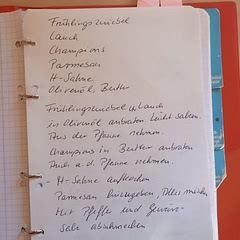 Frühlingszwiebel
Lauch
Champions
Parmesan
H-Sahne
Olivenöl, Butter
Frühlingszwiebel u. Lauch
in Olivenöl anbraten leicht salzen.
Aus der Pfanne nehmen.
Champions in Butter anbraten
Auch a. d. Pfanne nehmen.
- H-Sahne aufkochen
Parmesan hinzugeben, Alles mischen
Mit Pfeffer und Gewürz-
salz abschmecken